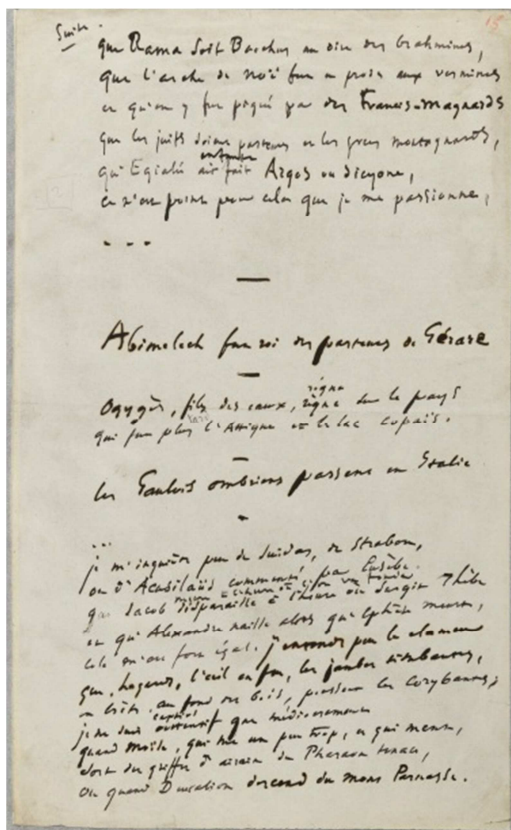 Suite.
15
que Rama soit Bacchus au dire des brahmines,
que l'arche de Noë fut en proie aux vermines
et qu'on y fut piqué par des Francis-Magnards
que les juifs soient pasteurs et les grecs montagnards,
qu'Egialé ait fait Argos ou Sicyone,
ce n'est point pour cela que je me passionne,
...
Abimelech fut roi des pasteurs de Gérare
Ogygès, fils des eaux, règne sur le pays
règne
qui fut plus tard l'Attique et le lac Copaïs.
les Gaulois ombriens passent en Italie
...
je m'inquiète peu de Suidas, de Strabon,
ou d'Acusilaüs commenté par Eusèbe.
que Jacob disparaisse à l'heure où surgit Thèbe
et qu'Alexandre naisse alors que Ephète meurt,
cela m'est fort égal. j'entends peu la clameur
que, hagards, l'œil en feu, les jambes titubantes,
au fond des bois, poussent les corybantes;
je ne suis attentif que médiocrement
quand Moïse, qui tue un peu trop, et qui ment,
sort des griffes d'airain du Pharaon tenace,
ou quand Deucalion descend du mont Parnasse.